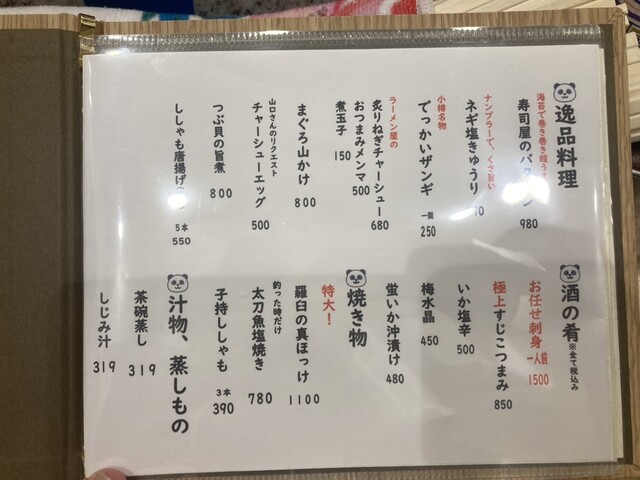 逸品料理
海苔で巻き巻き
寿司屋のバク
980
ナンプラーで、くさ旨い
ネギ塩きゅうり
70
小樽名物
でっかいザンギ
一個
250
ラーメン屋の
炙りねぎチャーシュー
680
おつまみメンマ
500
煮玉子
150
まぐろ山かけ
800
山口さんのリクエスト
チャーシューエッグ
500
つぶ貝の旨煮
800
ししゃも唐揚げ
5本
550
酒の肴
※全て税込み
お任せ刺身
一人前
1500
極上すじこつまみ
850
いか塩辛
500
梅水晶
450
蛍いか沖漬け
480
焼き物
特大!
羅臼の真ほっけ
1100
釣った時だけ
太刀魚塩焼き
780
子持ししゃも
3本
390
汁物、蒸しもの
茶碗蒸し
319
しじみ汁
319